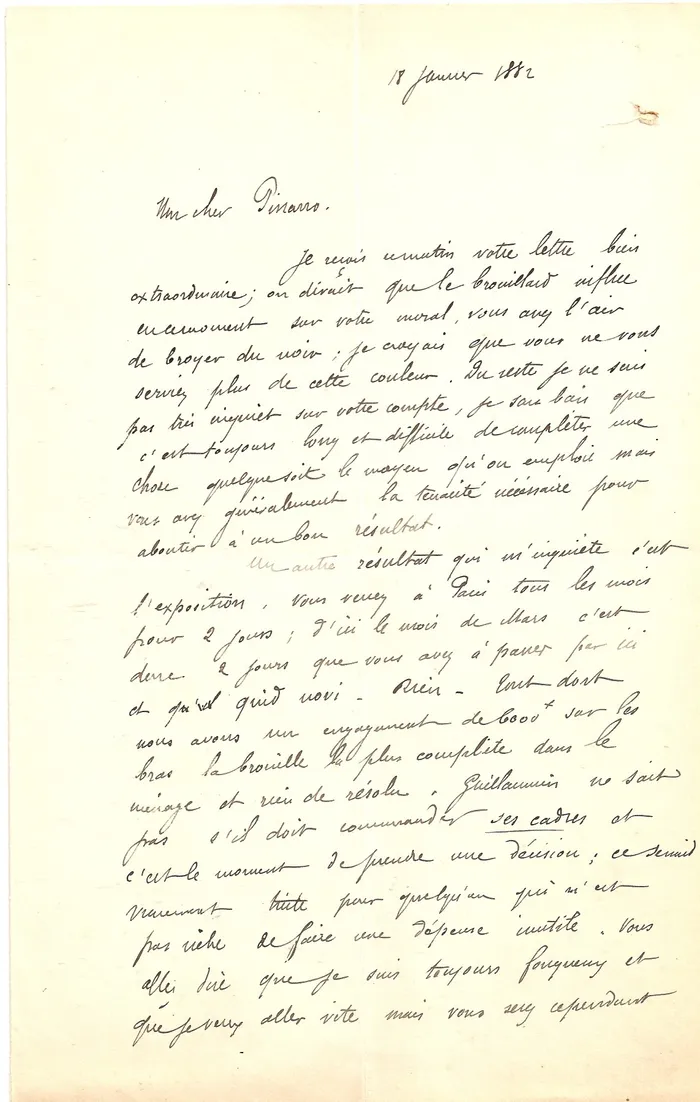 18 Janvier 1882
Mon cher Pissarro.
Je reçois ce matin votre lettre bien
extraordinaire ; on dirait que le brouillard influe
en ce moment sur votre moral, vous avez l'air
de broyer du noir ; je croyais que vous ne vous
serviez plus de cette couleur. Du reste je ne suis
pas très inquiet sur votre compte, je sais bien que
c'est toujours long et difficile de complèter une
chose quelque soit le moyen qu'on emploie mais
vous avez généralement la tenacité nécessaire pour
aboutir à un bon résultat.
Un autre résultat qui m'inquiète c'est
l'exposition. Vous venez à Paris tous les mois
pour 2 jours ; d'ici le mois de Mars c'est
donc 2 jours que vous avez à passer par ici
et quid novi - Rien - tout dort
nous avons un engagement de 6000f sur les
bras la brouille la plus complète dans le
ménage et rien de résolu. Guillaumin ne sait
pas s'il doit commander ses cadres et
c'est le moment de prendre une décision ; ce serait
vraiment triste pour quelqu'un qui n'est
pas riche de faire une dépense inutile. Vous
allez dire que je suis toujours fougueux et
que je veux aller vite mais vous serez cependant